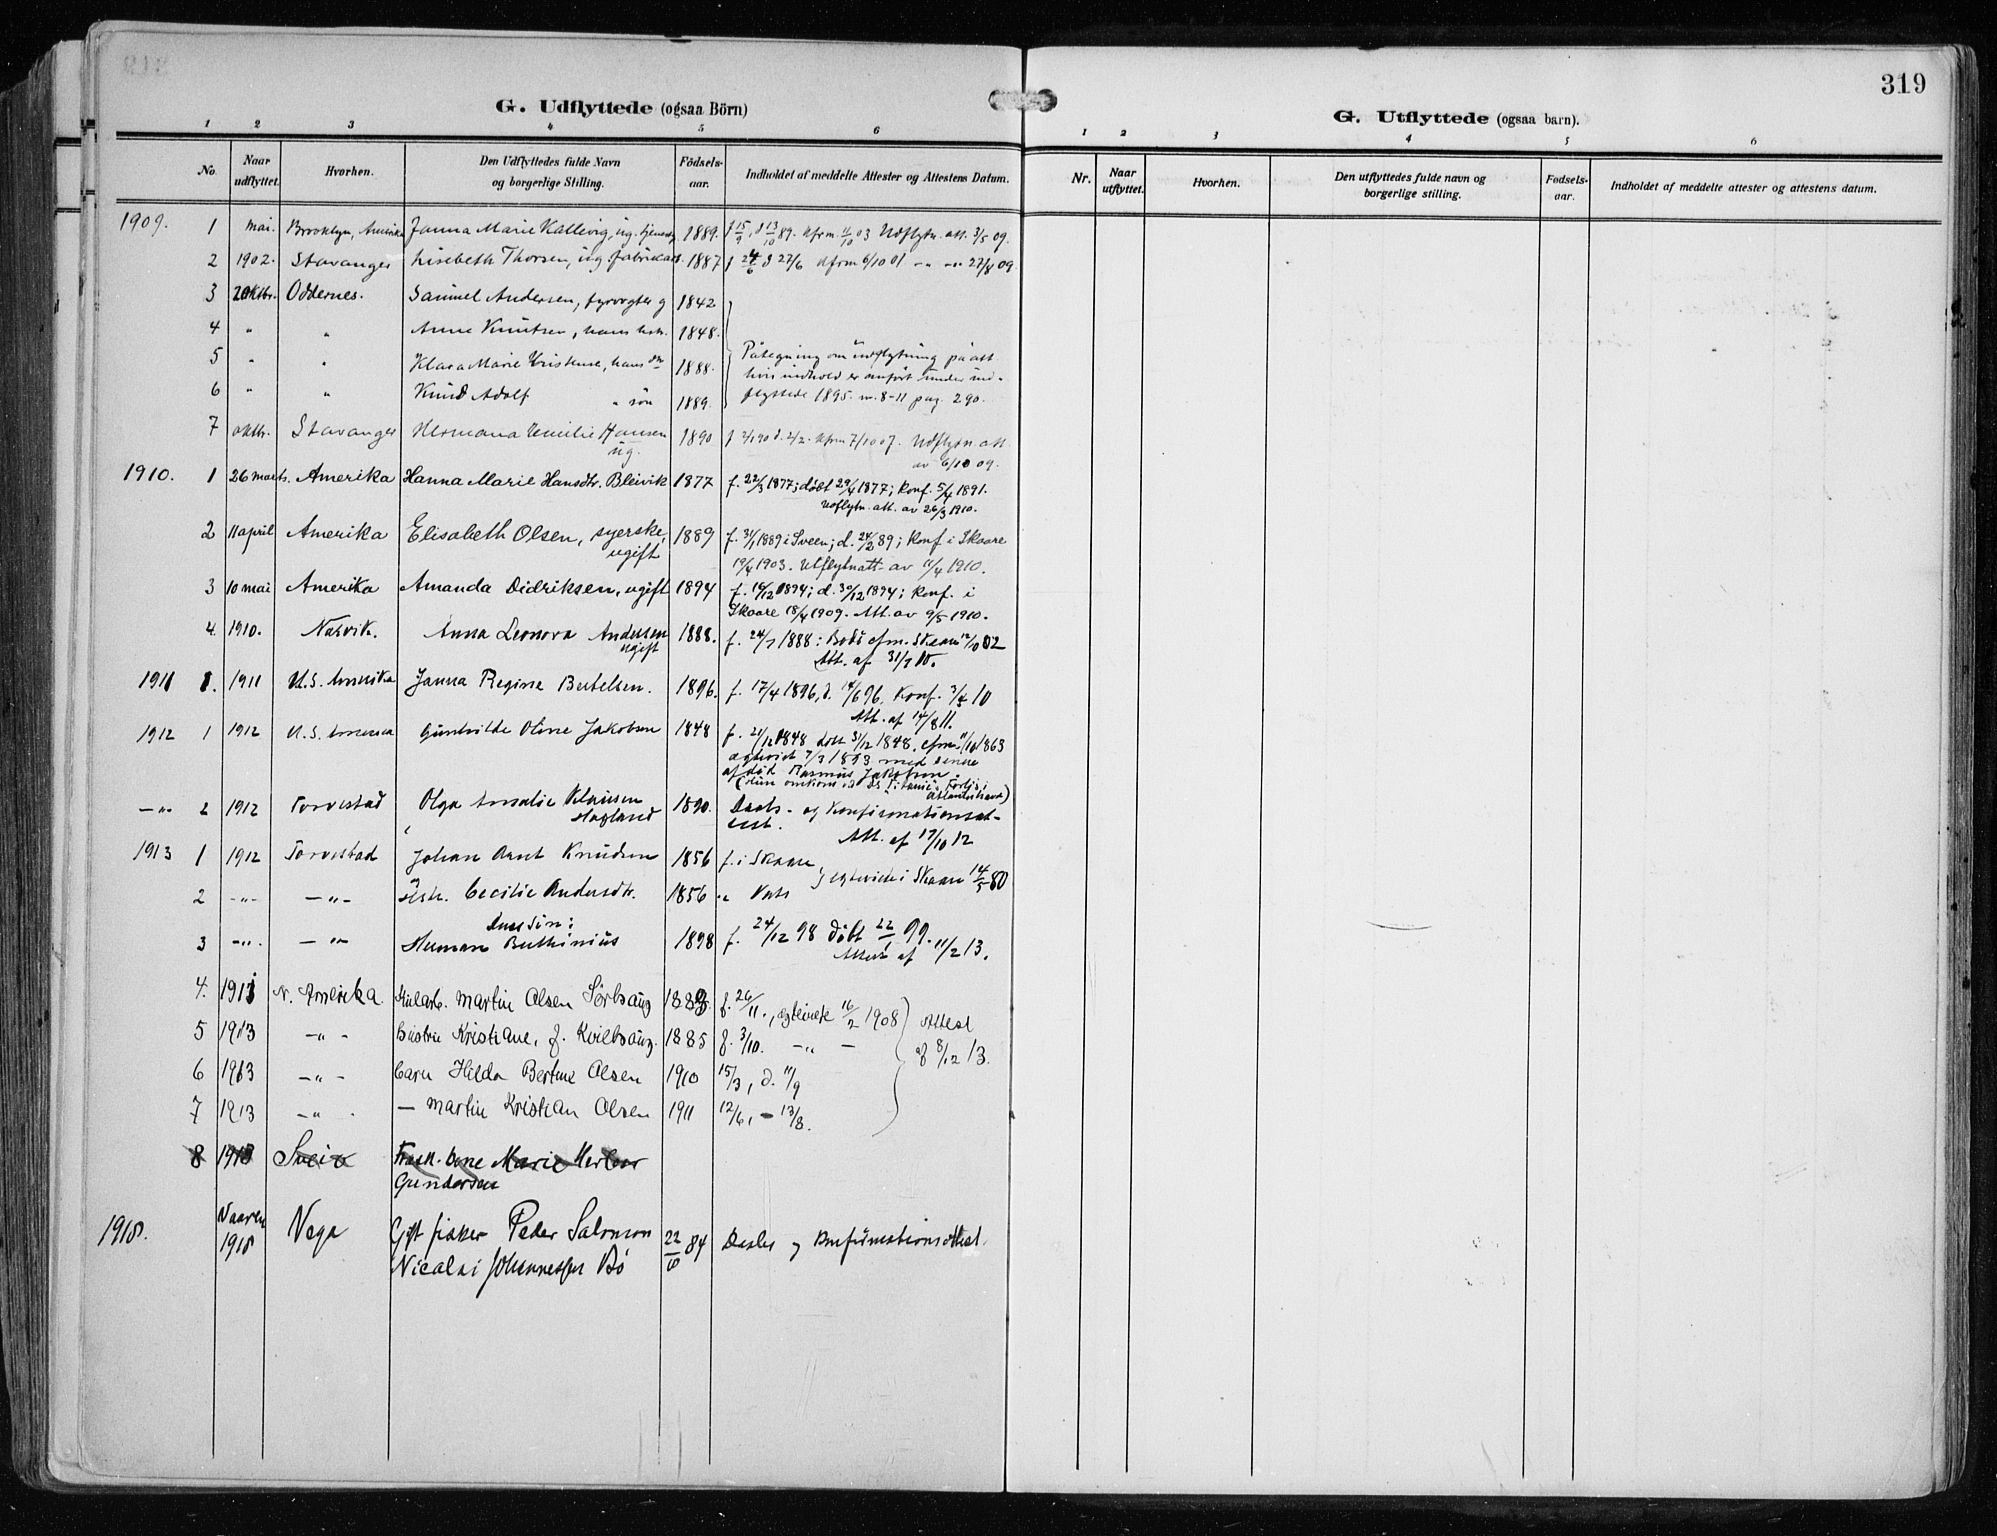 G. Udflyttede (ogsaa Börn)
1 2 3 4 5 6
No. Naar udflyttet. Hvorhen. Den Udflyttedes fulde Navn og borgerlige Stilling. Fødsels-aar. Indholdet af meddelte Attester og Attestens Datum.
1909. 1 mai. Brooklyn, Amerika Janna Marie Kallevig, ug. 1889. f 15/9, d 13/10 89. kfrm. 11/10 03 Udflytn. att. 3/5 09.
2 1902. Stavanger Lisebeth Thorsen, ug fabrikarb. 1887 f 24/6 d 27/6 kfrm 6/10 01 - " - " 27/8 09
3 oktbr. Oddernes. Samuel Andersen, fyrvogter g 1842
4 " " Anne Knutsen, hans hstr. 1848.
5 " " Klara Marie Kristense, hans dtr 1888. Påtegning om udflytning på att.
hvis indhold er anført under ind-
6 " " Knud Adolf " søn 1889. flyttede 1895 nr. 8-11 pag. 290.
7 oktbr. Stavanger Hermana Emilie Hansen 1890 f 2/1 90 d. 2/2. kfrm 7/10 07. Udflytn. att.
ug. av 6/10 09.
1910. 1 26 marts. Amerika Hanna Marie Hansdtr. Bleivik 1877 f. 22/3 1877; döbt 29/4 1877; konf. 5/4 1891.
Udflytn. att. av 26/3 1910.
2 11 april Amerika Elisabeth Olsen, syerske, 1889 f. 31/1 1889 i Sveen; d. 24/2 89; konf i Skaare
ugift 19/4 1903. Utflytnatt. av 11/4 1910.
3 10 mai Amerika Amanda Didriksen, ugift 1894 f. 10/12 1894; d. 30/12 1894; konf. i
Skaare 18/4 1909. Att. av 9/5 1910.
4. 1910. Narvik. Anna Leonora Andersen 1888. f. 24/7 1888: Bodö cfm. Skaare 12/10 02
ugift Att. af 31/7 10.
1911 1. 1911 U.S. Amerika Janna Regine Bertelsen. 1896. f. 17/4 1896, d. 14/6 96, Konf. 3/4 10
Att. af 14/8 11.
1912 1 1912 U.S. America Gunhilde Oline Jakobsen 1848 f. 21/12 1848 döbt 31/12 1848. cfm. 11/10 1863
ægteviet 7/3 1873 med senere
afdök Rasmus Jakobsen.
(hun omkom ved Titanic's Forlis i Atlanterhavet)
- " - 2 1912 Torvestad Olga Amalie Klausen 1890. Daabs- og Konfirmationsat-
Hagland test. Att. af 17/10 12
1913 1 1912 Torvestad Johan Arnt Knudsen 1856 f. i Skaare
} egteviet i Skaare 14/5 80
2 - " - - " - Hstr. Cecilie Andersdtr. 1856 " Vats
Deres Sön:
3 - " - - " - Herman Berthinius 1898 f. 24/12 98 döbt 22/1 99.
Attest af 11/2 13.
4. 1913 N. Amerika. Martin Olsen Sörhaug 1883. f. 26/11., ægteviet 16/2 1908 } Attest
5 1913 - " - Hustru Kristiane, f. Kvilhaug. 1885 f. 3/10. - " - af 8/12 13.
6 1913 - " - Barn Hilda Bertine Olsen 1910 15/3, d. 11/9
7 1913 - " - — Martin Kristian Olsen 1911 12/6, - 13/8.
8 1913 Sveio Frøk. Marie
Gundersen
1918. Vaaren 1918 Vega Gift fisker Peder Salomon 22/6 84 Daabs og Konfirmationsattest.
Nicolai Johannessen Bö
319
G. Utflyttede (ogsaa barn).
1 2 3 4 5 6
Nr. Naar utflyttet. Hvorhen. Den utflyttedes fulde navn og borgerlige stilling. Fødsels-aar. Indholdet af meddelte attester og attestens datum.